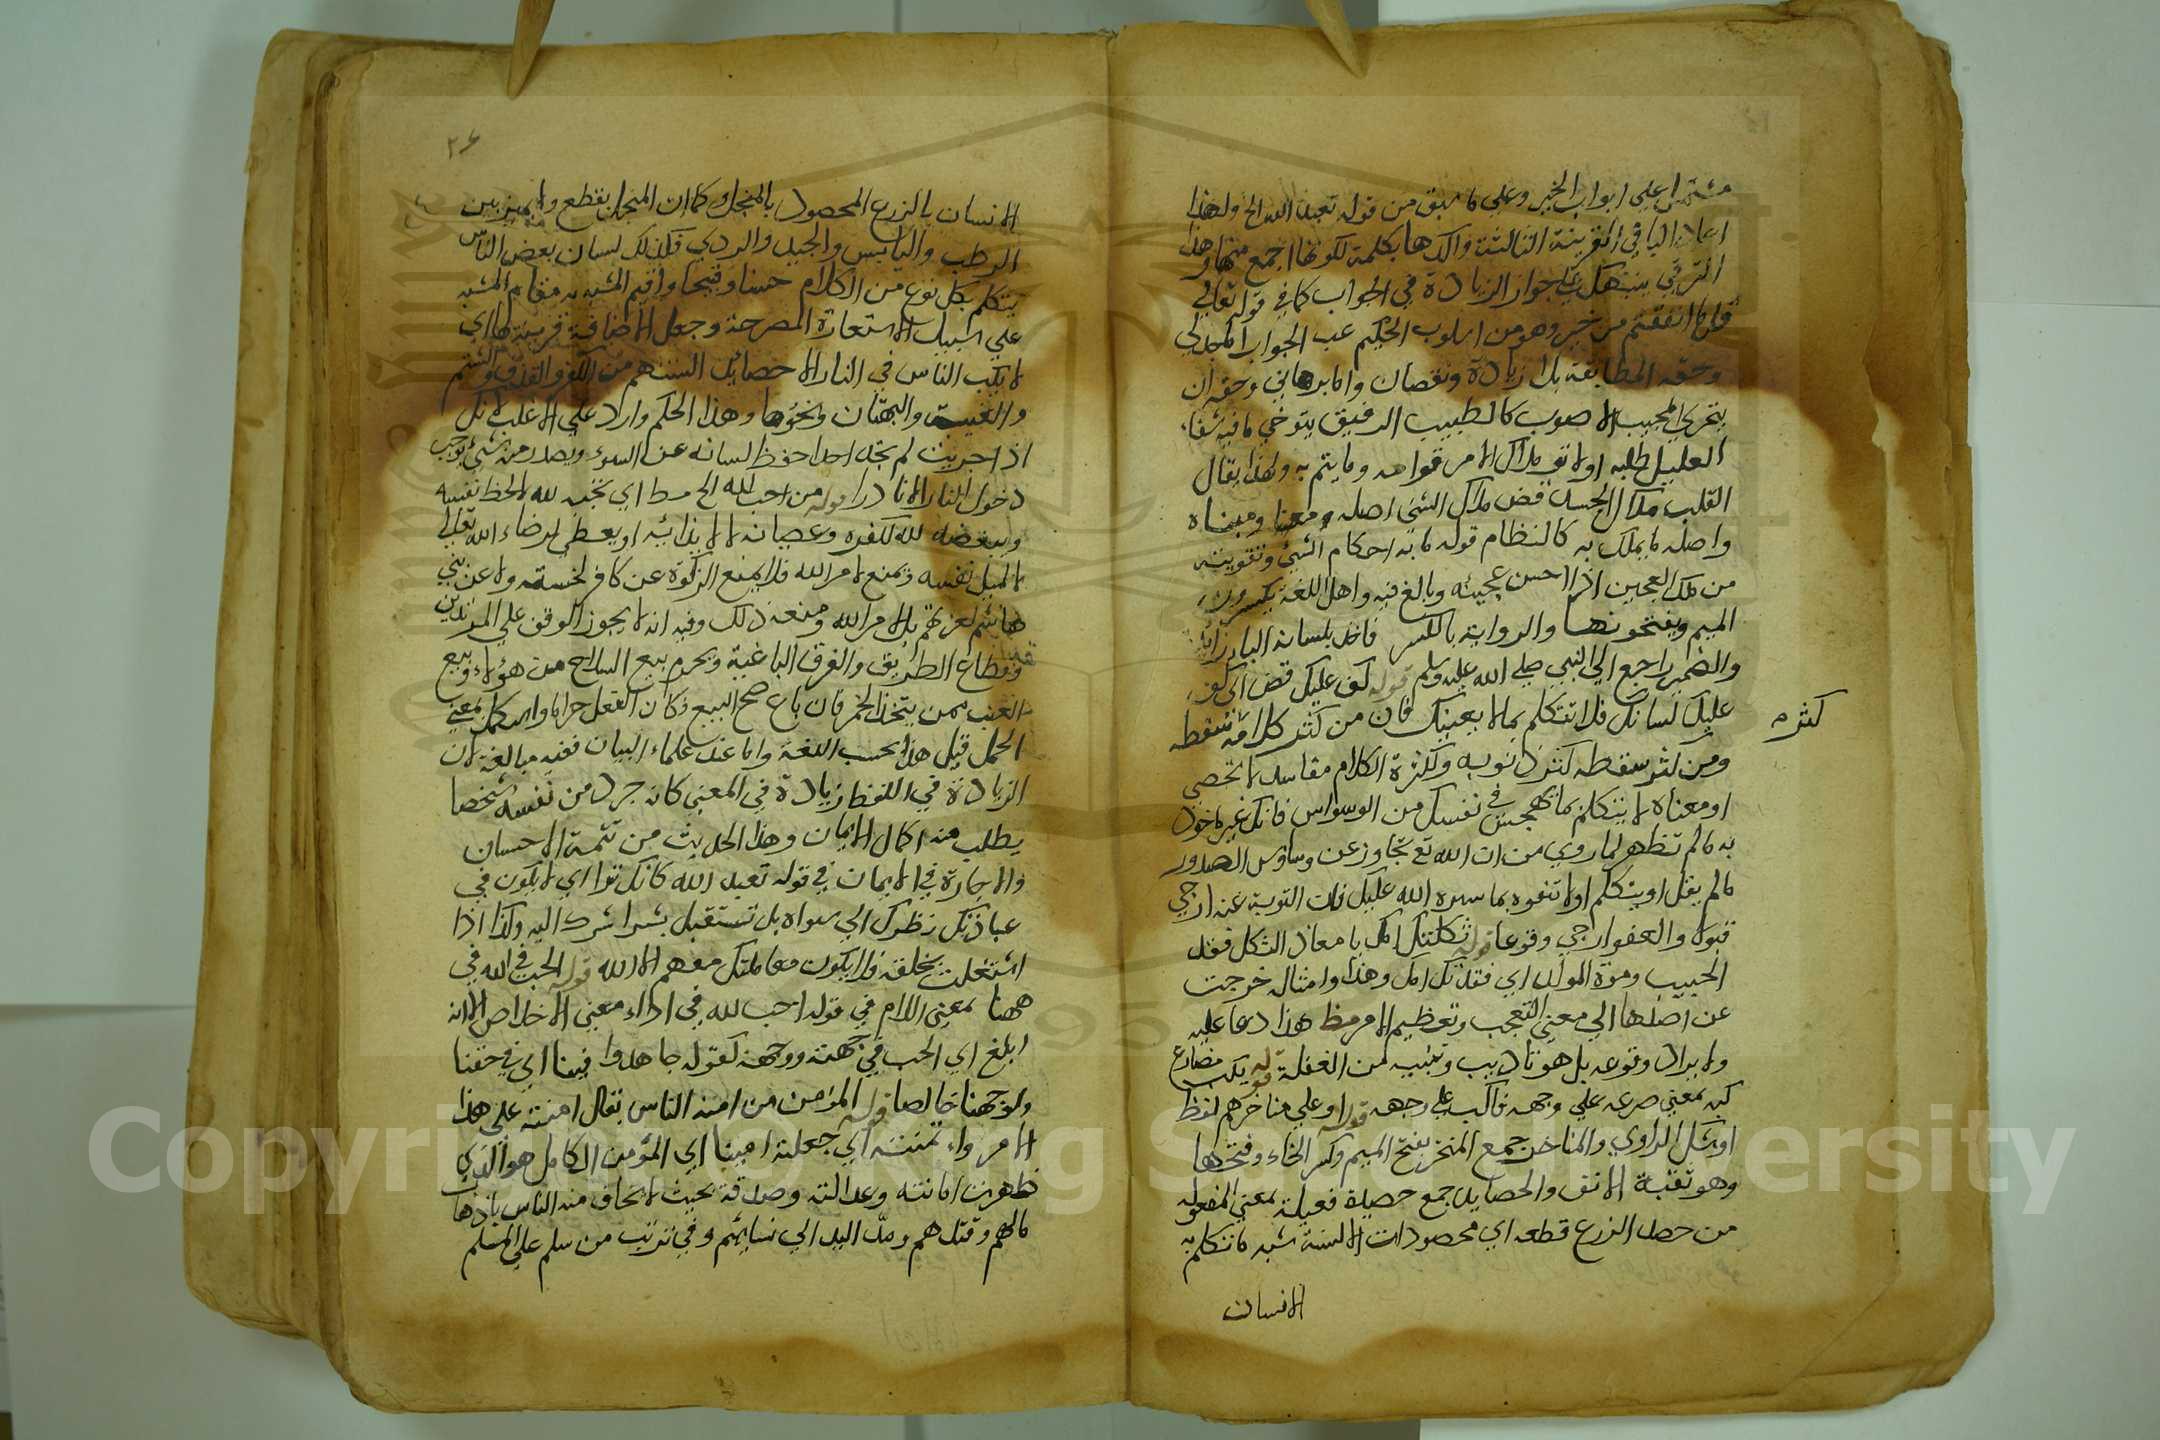 مشتمل علي ابواب الخير وعلي ما سبق من قوله تعبد الله الخ ولهذا
اعاد الباقي القرينة الثالثة واكدها بكلمة لكونها اجمع منها وهذا
الترقي ينبهك علي جواز الزيادة في الجواب كما في قوله تعالي
قل ما انفقتم من خير وهو من اسلوب الحكيم عب الجواب الجدلي
وحقه المطابقة بلا زيادة ونقصان واما برهاني وحقه ان
يتحري المجيب الاصوب كالطبيب الرفيق يتوخي ما فيه شفاء
العليل طلبه اولا قو ملاك الامر قوامه وما يتم به ولهذا يقال
القلب ملاك الجسد قض ملاك الشئ اصله ومعنا ومبناه
واصله ما يملك به كالنظام قوله ما به احكام الشئ وتقويته
من ملك العجين اذا احسن عجينه وبالغ فيه واهل اللغة يكسرون
الميم ويفتحونها والرواية بالكسر فاخذ بلسانه الباء زائدة
والضمير راجع الي النبي صلي الله عليه وسلم قوله كف عليك قض اي كف
عليك لسانك فلا تتكلم بما لا يعينك فان من كثر كلامه سقطه
كثر م
ومن كثر سقطه كثر ذنوبه ولكثرة الكلام مفاسد لا تحصي
او معناه لا يتكلم بما تهجس في نفسك من الوسواس فانك غير ماخوذ
به ما لم تظهر لما روي من ان الله تع تجاوز عن وساوس الصدور
مالم يقل او يتكلم او لا تتفوه بما ستره الله عليك فان التوبة عنه ارجي
قبولا والعفو ارجي وقوعا قوله ثكلتك امك يا معاذ الثكل فقد
الحبيب وموت المولد اي فقدتك امك وهذا وامثاله خرجت
عن اصلها الي معني التعجب وتعظيم الامر مظ هذا دعا عليه
ولا يراد وقوعه بل هو تاديب وتنبيه من الغفلة قوله يكب مضارع
كبه بمعني صرعه علي وجهه فاكب علي وجهه قوله او علي مناخرهم لفظ
او شك الراوي والمناخر جمع المنخر بفتح الميم وكسر الخاء وفتحها
وهو ثقبة الانف والحصايد جمع حصيدة فعيلة بمعني المفعولة
من حصد الزرع قطعه اي محصودات الالسنة شبه ما تكلم به
الانسان
٢٦
الانسان بالزرع المحصود بالمنجل وكما ان المنجل يقطع ولا يميز بين
الرطب واليابس والجيد والردي فكذلك لسان بعض الناس
يتكلم بكل نوع من الكلام حسنا وقبيحا واقيم المشبه به مقام المشبه
علي سبيل الاستعارة المصرحة وجعل الاضافة قرينة لها اي
لا يكب الناس في النار الا حصائد السنتهم من الكفر والقذف والشتم
والغيبة والبهتان ونحوها وهذا الحكم وارد علي الاغلب لانك
اذا جربت لم تجد احدا حفظ لسانه عن السوء ويصدر من شئ يوجب
دخول النار الا نادرا قوله من احب لله الخ مط اي يحبه لله لا لحظ نفسه
ويبغضه لله لكفره وعصيانه لا لايذائيه او يعطي لرضاء الله تعالي
لا لميل نفسه ويمنع لامر الله فلا يمنع الزكوة عن كافر لخسته ولا عن بني
هاشم لعزتهم بل لامر الله ومنعه ذلك وفيه انه لا يجوز الوقف علي المرتدين
وقطاع الطريق والفرق الباغية ويحرم بيع السلاح من هؤلاء وبيع
العنب ممن يتخذ الخمر فان باع صح البيع وكان الفعل حراما واستكمل بمعني
الحمل قيل هذا بحسب اللغة واما عند علماء البيان ففيه مبالغة لان
الزيادة في اللفظ زيادة في المعني كانه جرد من نفسه شخصا
يطلب منه اكمال الايمان وهذا الحديث من تتمة الاحسان
والاجادة في الايمان في قوله تعبد الله كانك تراه اي لا يكون في
عبادتك نظرك الي سواه بل تستقبل بشراشرك اليه وكذا اذا
اشتغلت بخلقه فلا يكون معاملتك معهم الا لله قوله الحب في الله في
ههنا بمعني اللام في قوله احب لله في اداء معني الاخلاص الا انه
ابلغ اي الحب في جهته ووجهه كقوله جاهدوا فينا اي في حقنا
ولوجهنا خالصا قوله المؤمن من امنه الناس يقال امنته علي هذا
الامر واءتمنته اي جعلته امينا اي المؤمن الكامل هو الذي
ظهرت امانته وعدالته وصدقه بحيث لا يخاف منه الناس باذهاب
مالهم وقتلهم ومد اليد الي نسايهم وفي ترتب من سلم علي المسلم